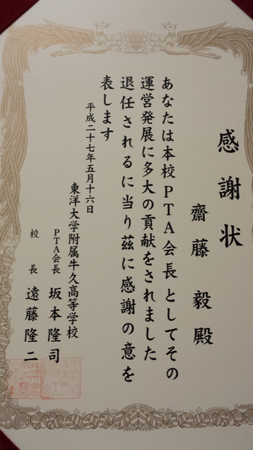 感謝状
齋藤 毅 殿
あなたは本校PTA会長としてその
運営発展に多大の貢献をされました
退任されるに当り茲に感謝の意を
表します
平成二十七年五月十六日
東洋大学附属牛久高等学校
PTA会長 坂本隆司
校長 遠藤隆二